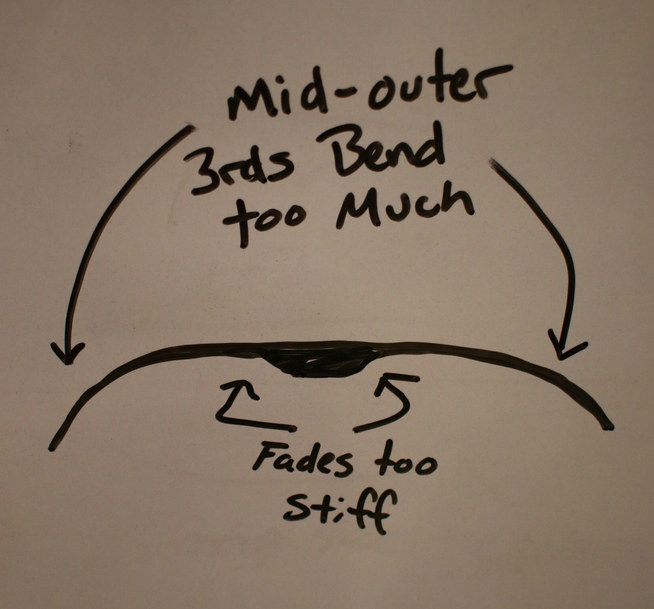 Mid-outer
3rds Bend
too Much
Fades too
Stiff